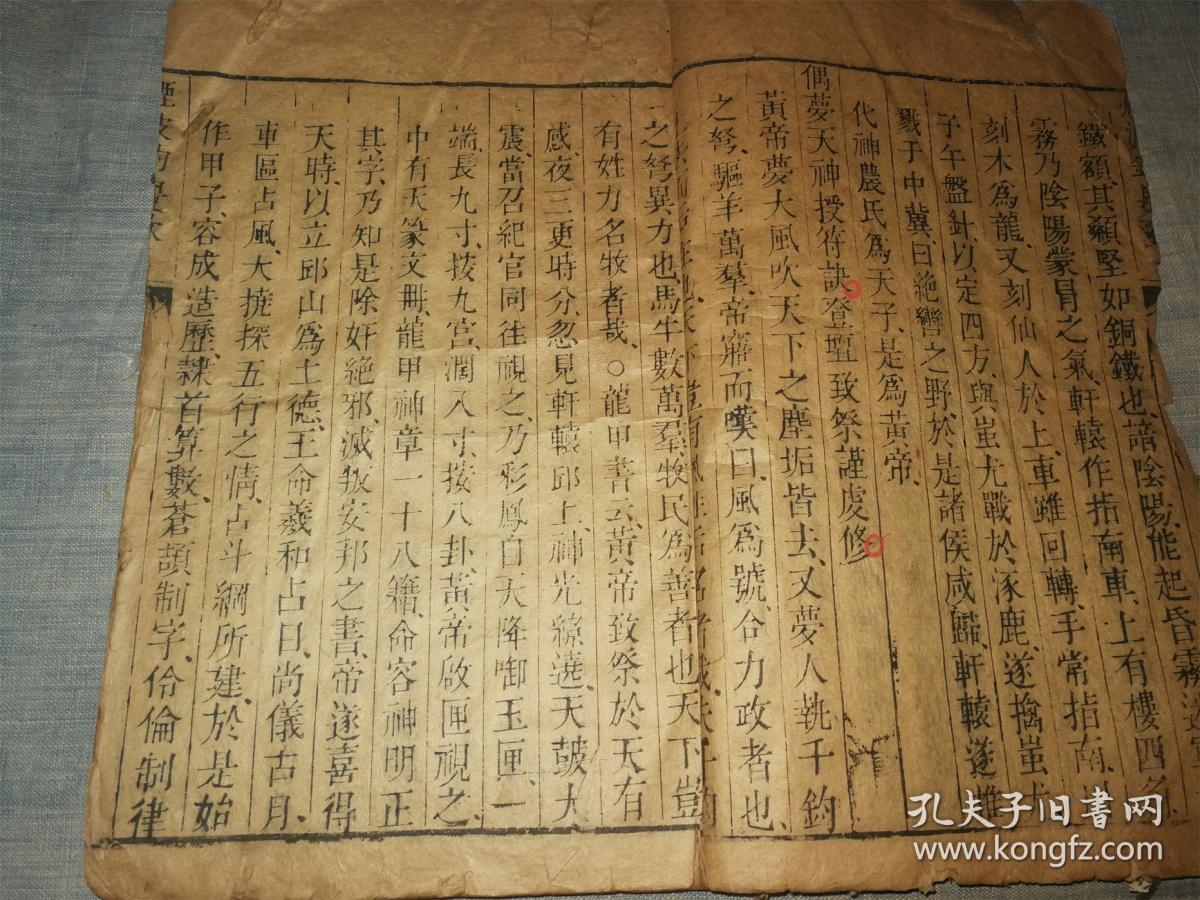 鐵額其顙堅如銅鐵也、諳陰陽、能起昏霧
霧乃陰陽蒙冐之氣、軒轅作指南車、上有樓四角
刻木爲龍、又刻仙人於上、車雖回轉、手常指南、
子午盤針以定四方、與蚩尤戰於涿鹿、遂擒蚩尤
戮于中冀、曰絶轡之野、於是諸侯咸歸、軒轅遂
代神農氏爲天子、是爲黃帝、
偶夢天神授符訣登壇致祭謹虔修
黃帝夢大風吹天下之塵垢皆去、又夢人執千鈞
之弩、驅羊萬羣、帝寤而嘆曰、風爲號、合力政者也、
之弩、異力也、馬牛數萬羣、牧民爲善者也、天下豈
有姓力名牧者哉、○龍甲書云、黃帝致祭於天有
感、夜三更時分、忽見軒轅邱上、神光繚遶、天皷大
震、當召紀官同往視之、乃彩鳳自天降啣玉匣、一
端、長九寸、按九宮、濶八寸、按八卦、黃帝啟匣視之、
中有天篆文冊、龍甲神章一十八籍、命容神明正
其字、乃知是除奸絶邪、滅叛安邦之書、帝遂喜得
天時、以立邱山爲土德、王命羲和占日、尚儀占月、
車區占風、大撓探五行之情、占斗綱所建、於是始
作甲子、容成造歷、隸首算數、蒼頡制字、伶倫制律
孔夫子旧书网
www.kongfz.com